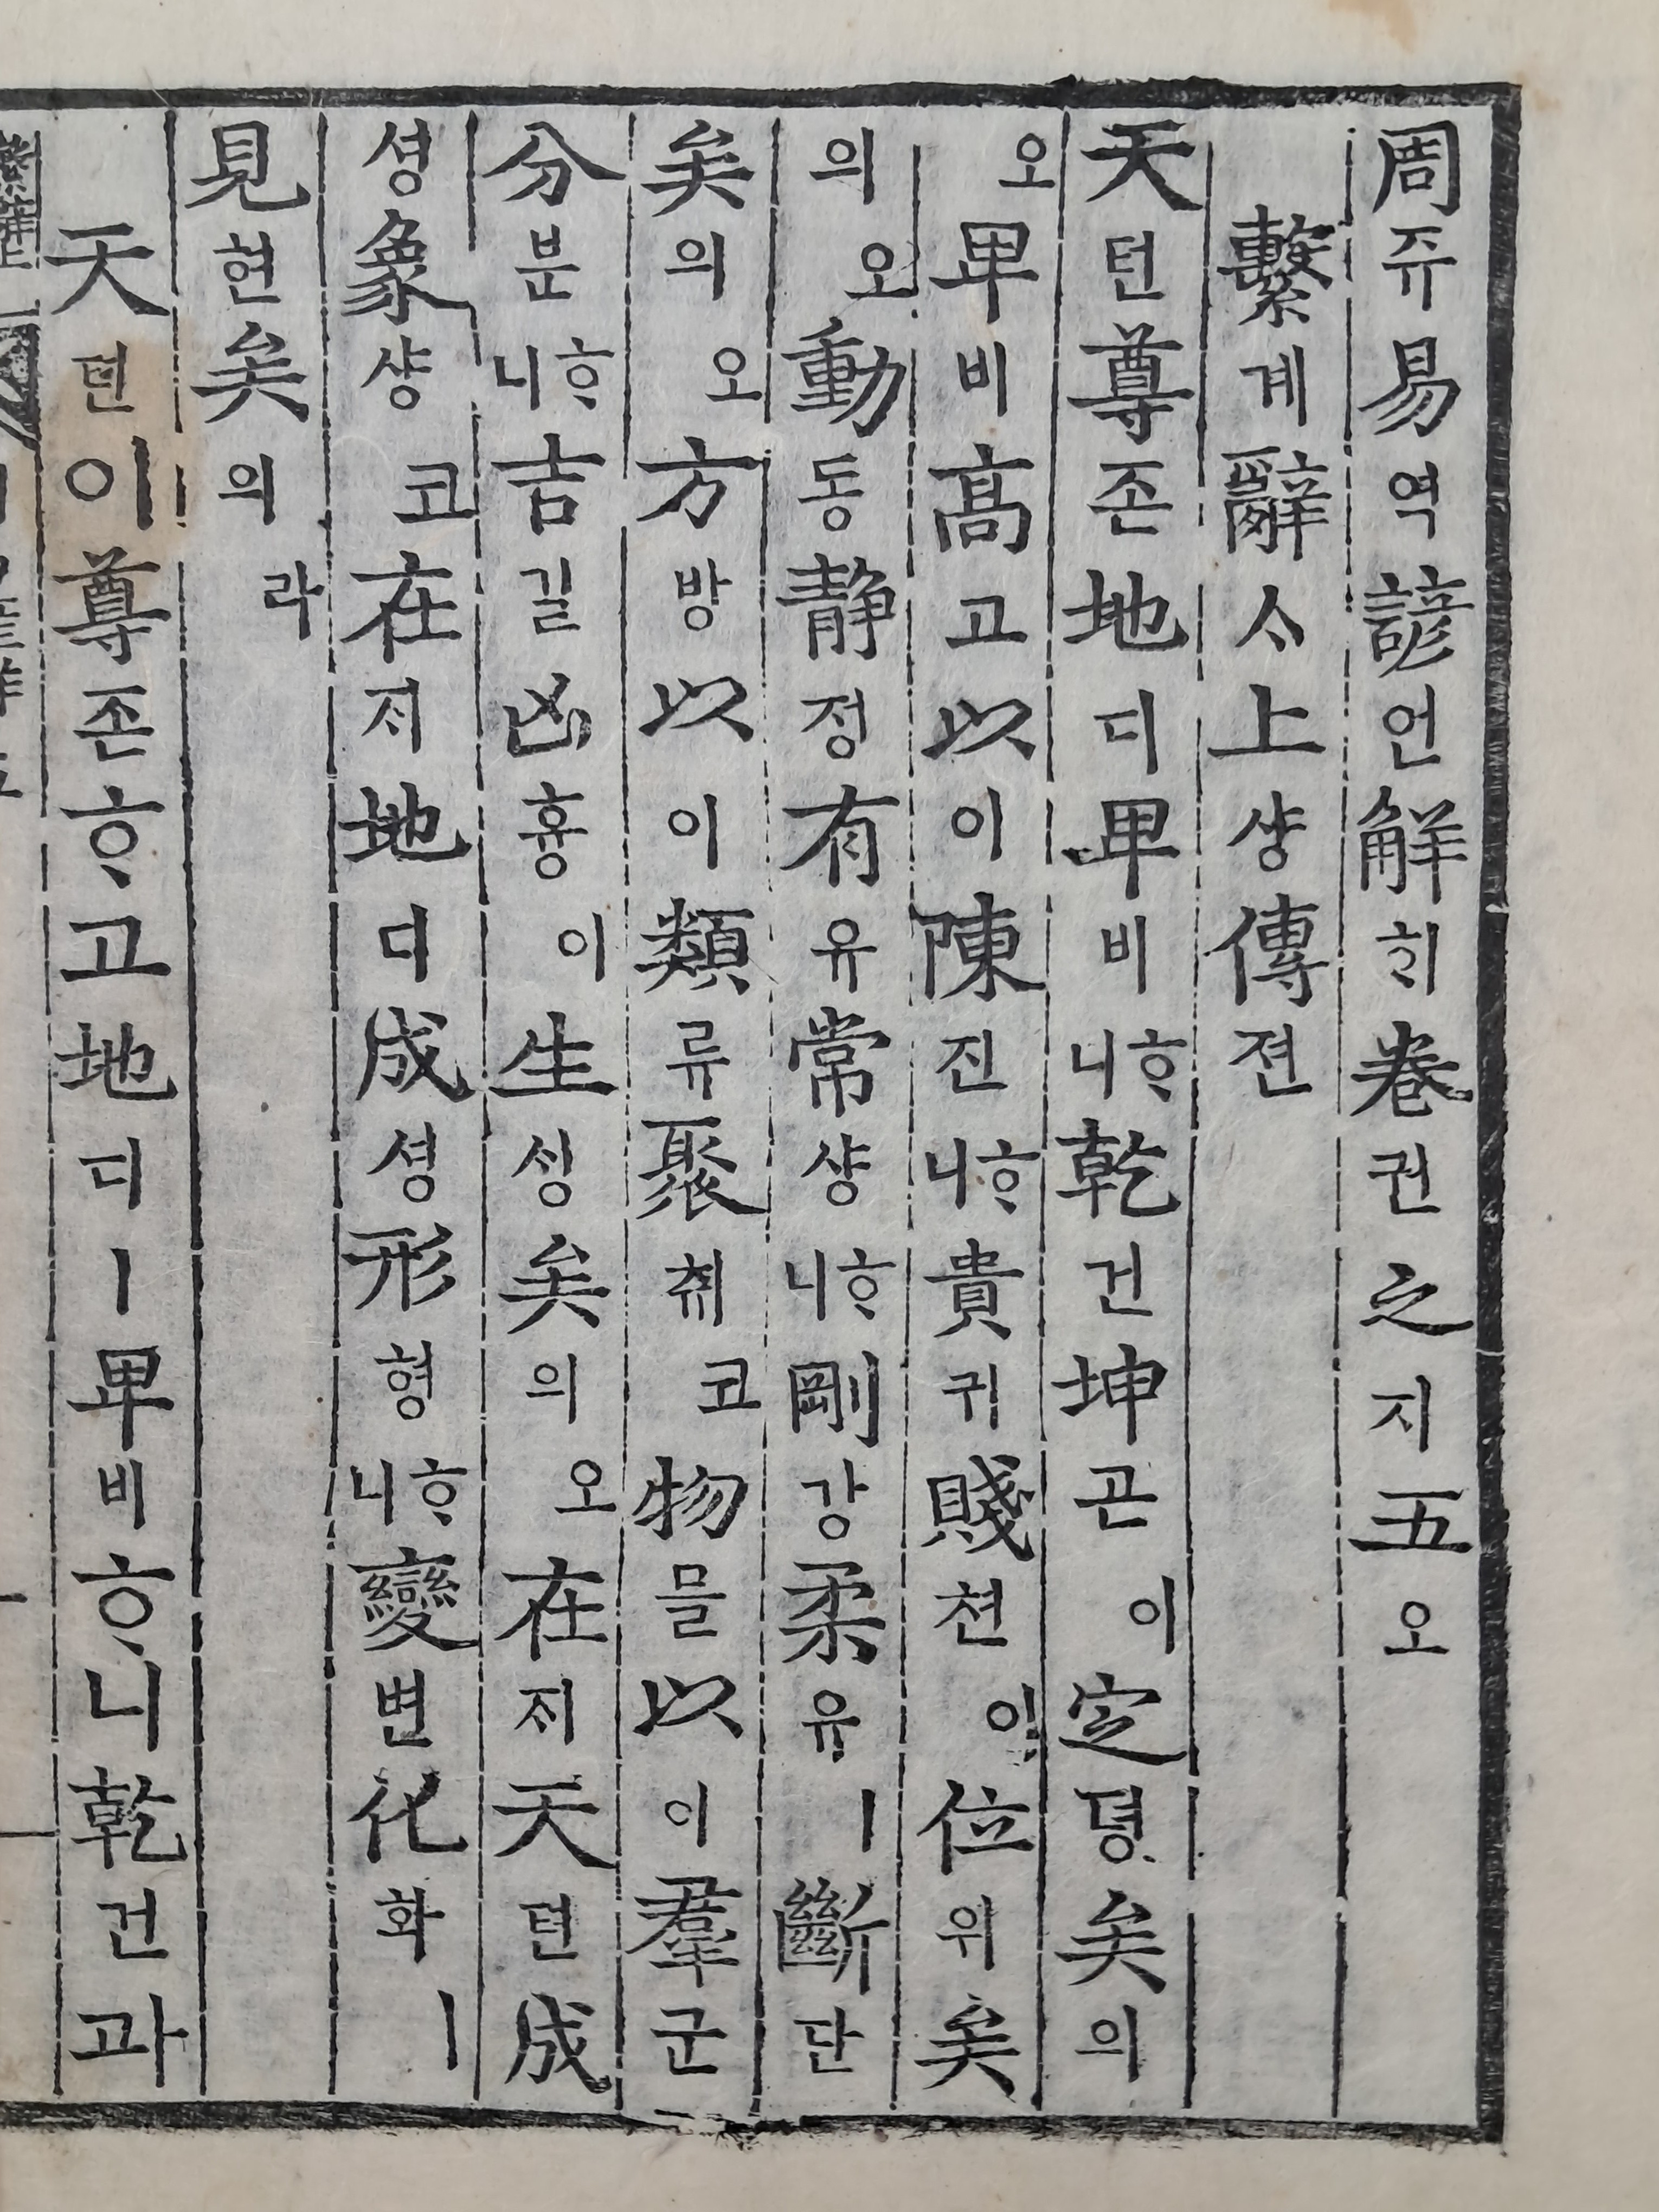 周쥬易역諺언解ᄒᆡ卷권之지五오
繫계辭ᄉᆞ上샹傳젼
天텬尊존地디卑비ᄒᆞ니乾건坤곤이定뎡矣의
오卑비高고以이陳진ᄒᆞ니貴귀賤쳔이位위矣
의오動동靜졍有유常샹ᄒᆞ니剛강柔유ㅣ斷단
矣의오方방以이類류聚취코物믈以이羣군
分분ᄒᆞ니吉길凶흉이生ᄉᆡᆼ矣의오在ᄌᆡ天텬成
셩象샹코在ᄌᆡ地디成셩形형ᄒᆞ니變변化화ㅣ
見현矣의라
天텬이尊존ᄒᆞ고地디ㅣ卑비ᄒᆞ니乾건과